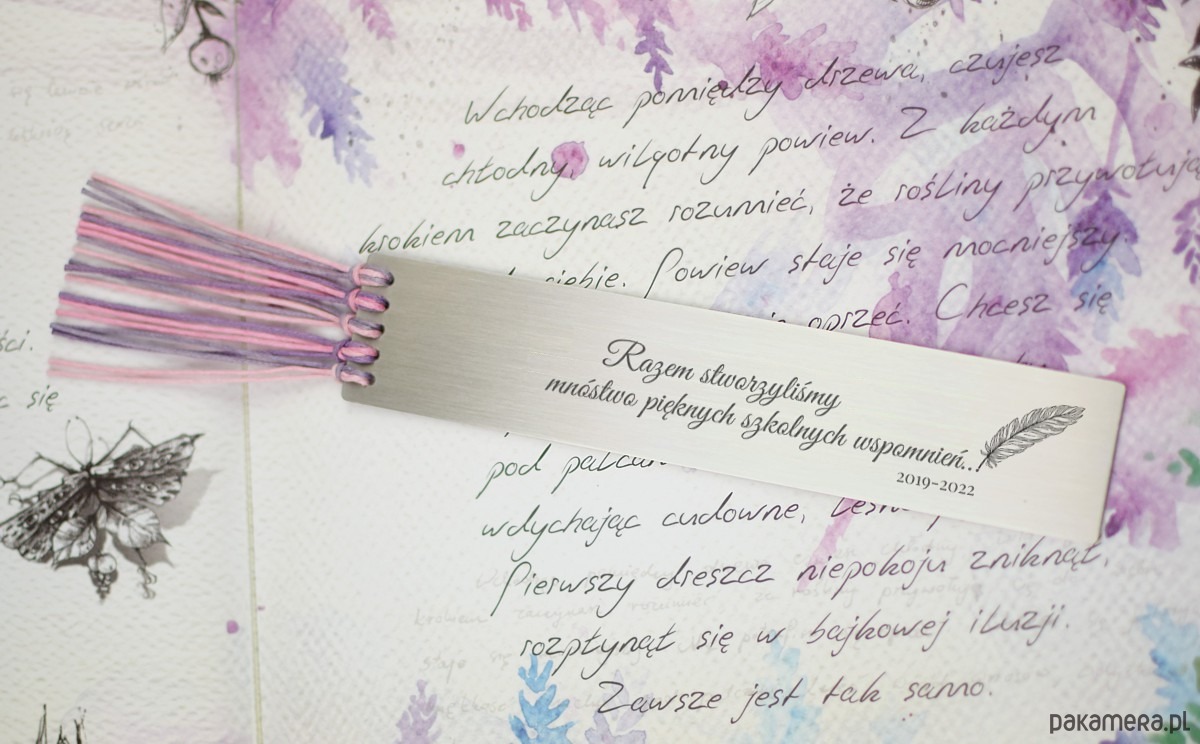 Wchodząc pomiędzy drzewa, czujesz
chłodny, wilgotny powiew. Z każdym
krokiem zaczynasz rozumieć, że rośliny przywołują
siebie. Powiew staje się mocniejszy.
oprzeć. Chcesz się
Razem stworzyliśmy
mnóstwo pięknych szkolnych wspomnień...
2019-2022
pod
wdychając cudowne,
Pierwszy dreszcz niepokoju zniknął,
rozpłynął się w bajkowej iluzji.
Zawsze jest tak samo.
się
pakamera.pl